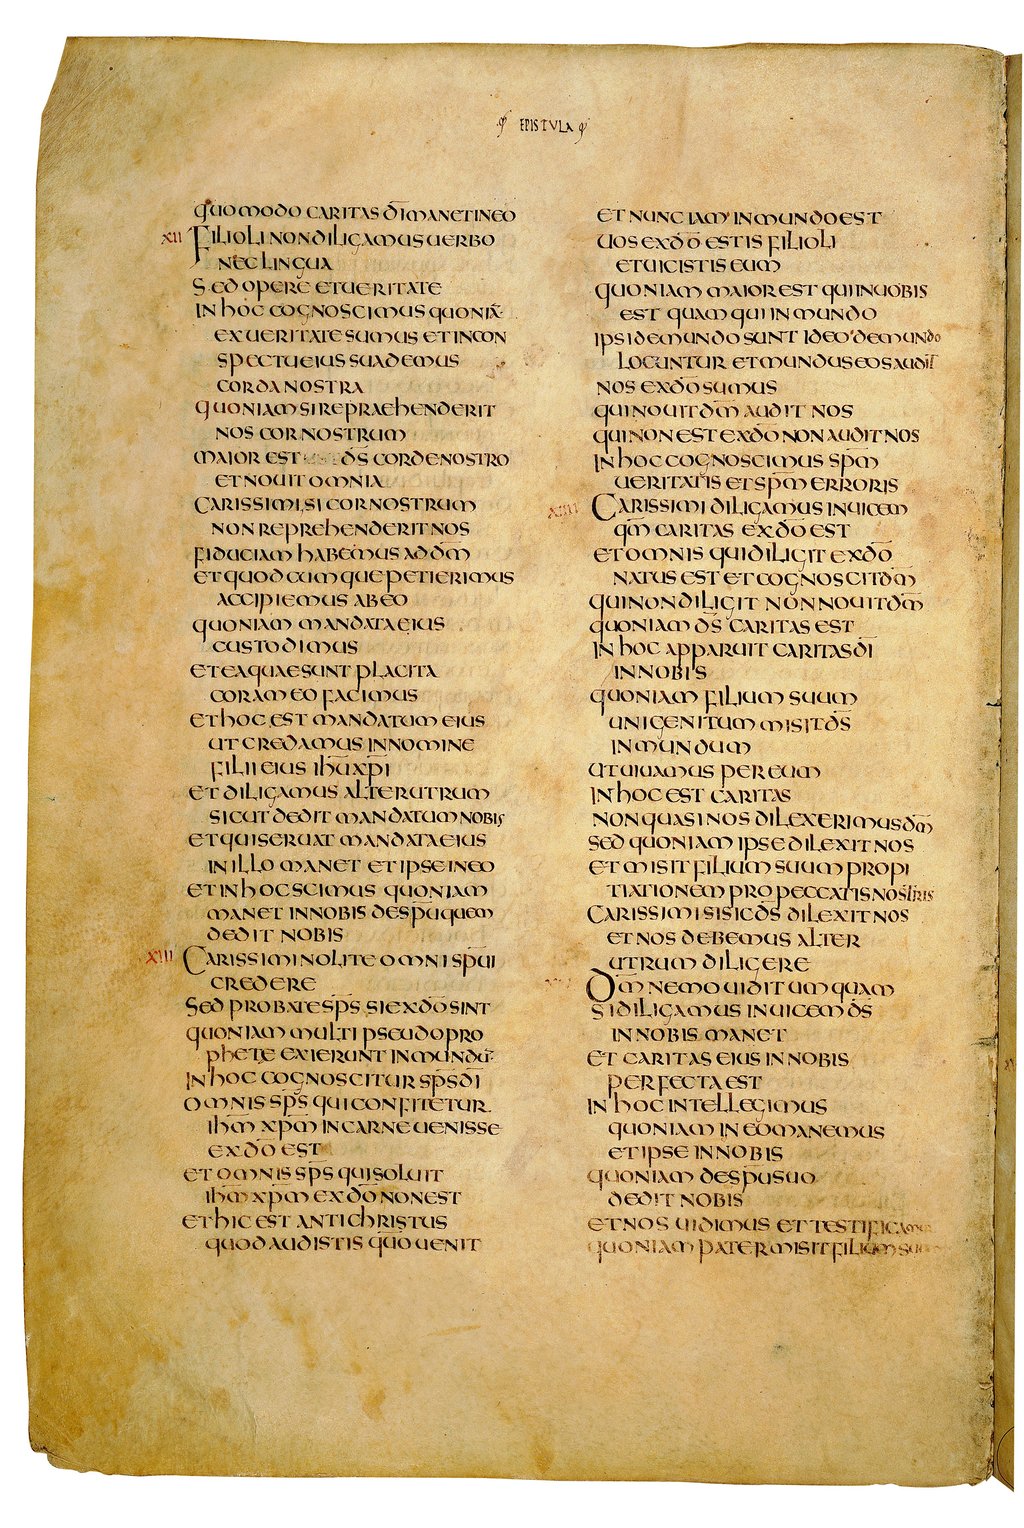 EPISTULA
QUOMODO CARITAS D̄I MANET IN EO
XII FILIOLI NON DILIGAMUS UERBO
NEC LINGUA
SED OPERE ET UERITATE
IN HOC COGNOSCIMUS QUONIĀ
EX UERITATE SUMUS ET IN CON
SPECTU EIUS SUADEMUS
CORDA NOSTRA
QUONIAM SI REPRAEHENDERIT
NOS COR NOSTRUM
MAIOR EST D̄S CORDE NOSTRO
ET NOUIT OMNIA
CARISSIMI SI COR NOSTRUM
NON REPREHENDERIT NOS
FIDUCIAM HABEMUS AD D̄M
ET QUODCUMQUE PETIERIMUS
ACCIPIEMUS AB EO
QUONIAM MANDATA EIUS
CUSTODIMUS
ET EA QUAE SUNT PLACITA
CORAM EO FACIMUS
ET HOC EST MANDATUM EIUS
UT CREDAMUS IN NOMINE
FILII EIUS IH̄U XP̄I
ET DILIGAMUS ALTERUTRUM
SICUT DEDIT MANDATUM NOBIS
ET QUI SERUAT MANDATA EIUS
IN ILLO MANET ET IPSE IN EO
ET IN HOC SCIMUS QUONIAM
MANET IN NOBIS DE SP̄U QUEM
DEDIT NOBIS
XIII CARISSIMI NOLITE OMNI SP̄UI
CREDERE
SED PROBATE SP̄S SI EX D̄O SINT
QUONIAM MULTI PSEUDOPRO
PHETE EXIERUNT IN MUNDŪ
IN HOC COGNOSCITUR SP̄S D̄I
OMNIS SP̄S QUI CONFITETUR
IH̄M XP̄M IN CARNE UENISSE
EX D̄O EST
ET OMNIS SP̄S QUI SOLUIT
IH̄M XP̄M EX D̄O NON EST
ET HIC EST ANTICHRISTUS
QUOD AUDISTIS QUO UENIT
ET NUNC IAM IN MUNDO EST
UOS EX D̄O ESTIS FILIOLI
ET UICISTIS EUM
QUONIAM MAIOR EST QUI IN UOBIS
EST QUAM QUI IN MUNDO
IPSI DE MUNDO SUNT IDEO DE MUNDO
LOCUNTUR ET MUNDUS EOS AUDIT
NOS EX D̄O SUMUS
QUI NOUIT D̄M AUDIT NOS
QUI NON EST EX D̄O NON AUDIT NOS
IN HOC COGNOSCIMUS SP̄M
UERITATIS ET SP̄M ERRORIS
XIIII CARISSIMI DILIGAMUS INUICEM
QM̄ CARITAS EX D̄O EST
ET OMNIS QUI DILIGIT EX D̄O
NATUS EST ET COGNOSCIT D̄M
QUI NON DILIGIT NON NOUIT D̄M
QUONIAM D̄S CARITAS EST
IN HOC APPARUIT CARITAS D̄I
IN NOBIS
QUONIAM FILIUM SUUM
UNIGENITUM MISIT D̄S
IN MUNDUM
UT UIUAMUS PER EUM
IN HOC EST CARITAS
NON QUASI NOS DILEXERIMUS D̄M
SED QUONIAM IPSE DILEXIT NOS
ET MISIT FILIUM SUUM PROPI
TIATIONEM PRO PECCATIS NOSTRIS
CARISSIMI SI SIC D̄S DILEXIT NOS
ET NOS DEBEMUS ALTER
UTRUM DILIGERE
D̄M NEMO UIDIT UMQUAM
SI DILIGAMUS INUICEM D̄S
IN NOBIS MANET
ET CARITAS EIUS IN NOBIS
PERFECTA EST
IN HOC INTELLEGIMUS
QUONIAM IN EO MANEMUS
ET IPSE IN NOBIS
QUONIAM DE SP̄U SUO
DEDIT NOBIS
ET NOS UIDIMUS ET TESTIFICAMUR
QUONIAM PATER MISIT FILIUM SUUM